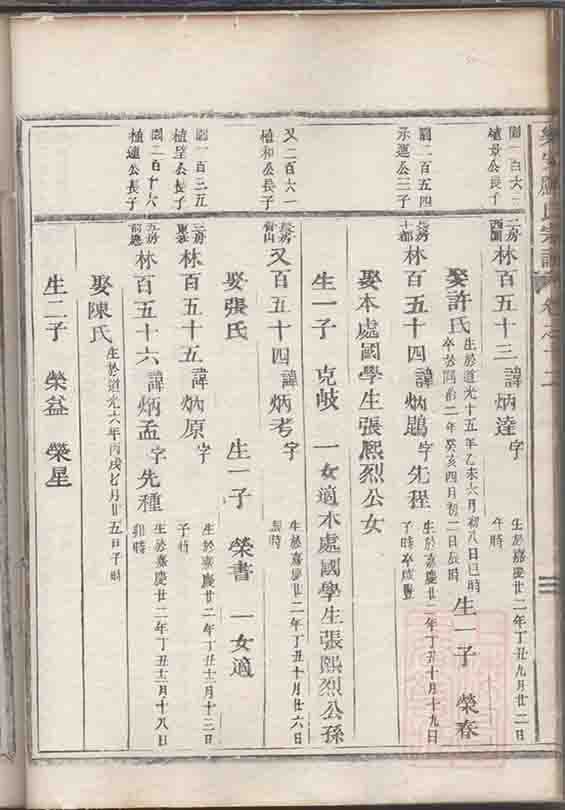 園一百六二
植京公長子
二房
西園
林百五十三 諱炳達 字 生於嘉慶廿二年丁丑九月廿二日
午時
娶許氏 生於道光十五年乙未六月初八日巳時
卒於同治二年癸亥四月初二日辰時 生一子 榮春
園二百五四
示運公三子
林百五十四 諱炳鵾 字先程 生於嘉慶廿二年丁丑十月十九日
子時卒咸豐
娶本處國學生張熙烈公女
生一子 克岐 一女適本處國學生張熙烈公孫
又二百六一
植和公長子
又百五十四 諱炳考 字 生於嘉慶廿二年丁丑十月廿六日
娶張氏 生一子 榮書 一女適
園一百三五
植望公長子
三房
林百五十五 諱炳原 字 生於嘉慶廿二年丁丑十二月十二日
子時
園二百十六
植通公長子
林百五十六 諱炳孟 字先種 生於嘉慶廿二年丁丑十二月十八日
卯時
娶陳氏 生於道光六年丙戌七月廿五日子時
生二子 榮益 榮星